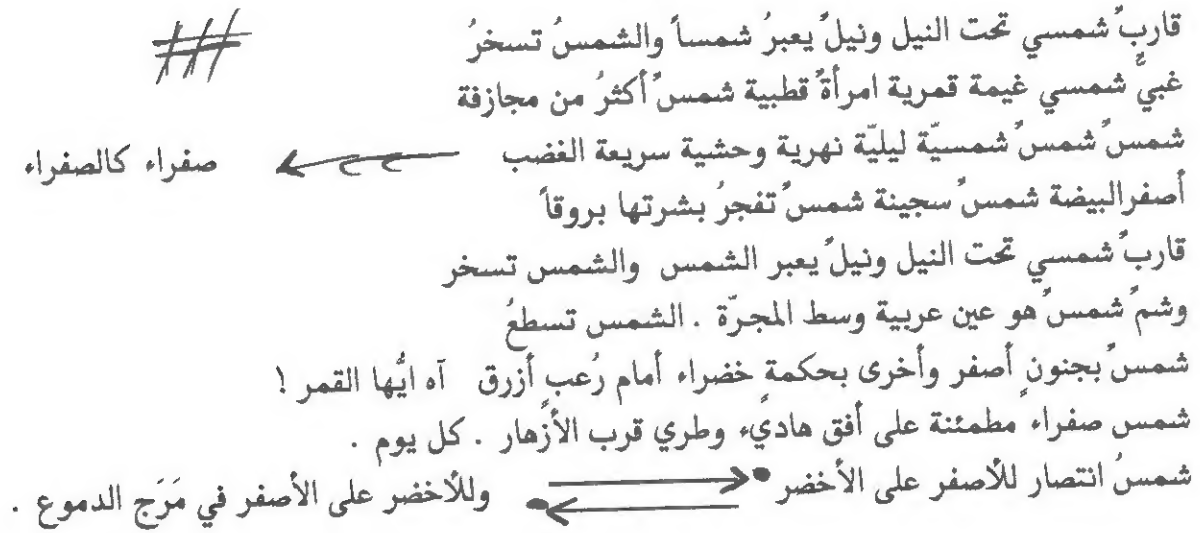 قاربٌ شمسي تحت النيل ونيلٌ يعبرُ شمساً والشمسُ تسخرُ
غبيٌّ شمسي غيمة قمرية امرأةٌ قطبية شمسٌ أكثرُ من مجازفة
شمسٌ شمسٌ شمسيّة ليليّة نهرية وحشية سريعة الغضب صفراء كالصفراء
أصفرالبيضة شمسٌ سجينة شمسٌ تفجرُ بشرتها بروقاً
قاربٌ شمسي تحت النيل ونيلٌ يعبر الشمس والشمس تسخر
وشمٌ شمسٌ هو عين عربية وسط المجرّة . الشمس تسطعُ
شمسٌ بجنونٍ أصفر وأخرى بحكمةٍ خضراء أمام رُعبٍ أزرق آه ايُّها القمر !
شمس صفراء مطمئنة على أفق هاديء وطري قرب الأزهار . كل يوم .
شمسُ انتصار للأصفر على الأخضر وللأخضر على الأصفر في مَرَج الدموع .